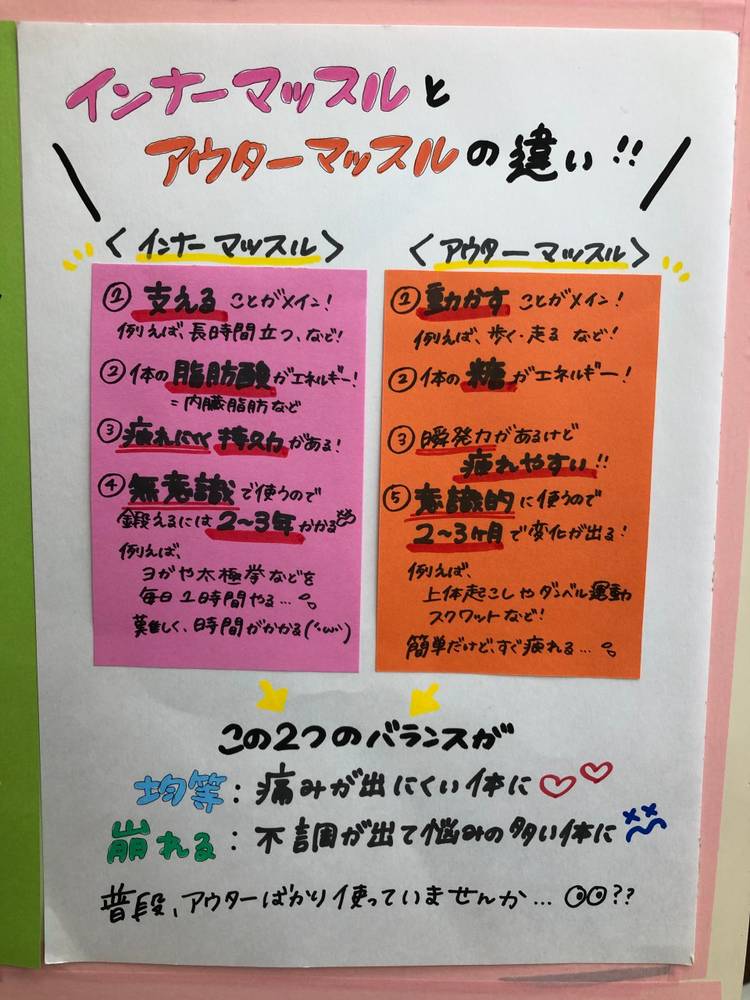 インナーマッスルと
アウターマッスルの違い!!
〈インナーマッスル〉
①支えることがメイン!
例えば、長時間立つ、など!
②体の脂肪酸がエネルギー!
=内臓脂肪など
③疲れにくく持久力がある!
④無意識で使うので
鍛えるには2〜3年かかる
例えば、
ヨガや太極拳などを
毎日1時間やる...
難しく、時間がかかる(´・ω・`)
〈アウターマッスル〉
①動かすことがメイン!
例えば、歩く・走るなど!
②体の糖がエネルギー!
③瞬発力があるけど
疲れやすい!!
⑤意識的に使うので
2〜3ヶ月で変化が出る!
例えば、
上体起こしやダンベル運動
スクワットなど!
簡単だけど、すぐ疲れる...
この2つのバランスが
均等:痛みが出にくい体に♡♡
崩れる:不調が出て悩みの多い体に
普段、アウターばかり使っていませんか...??